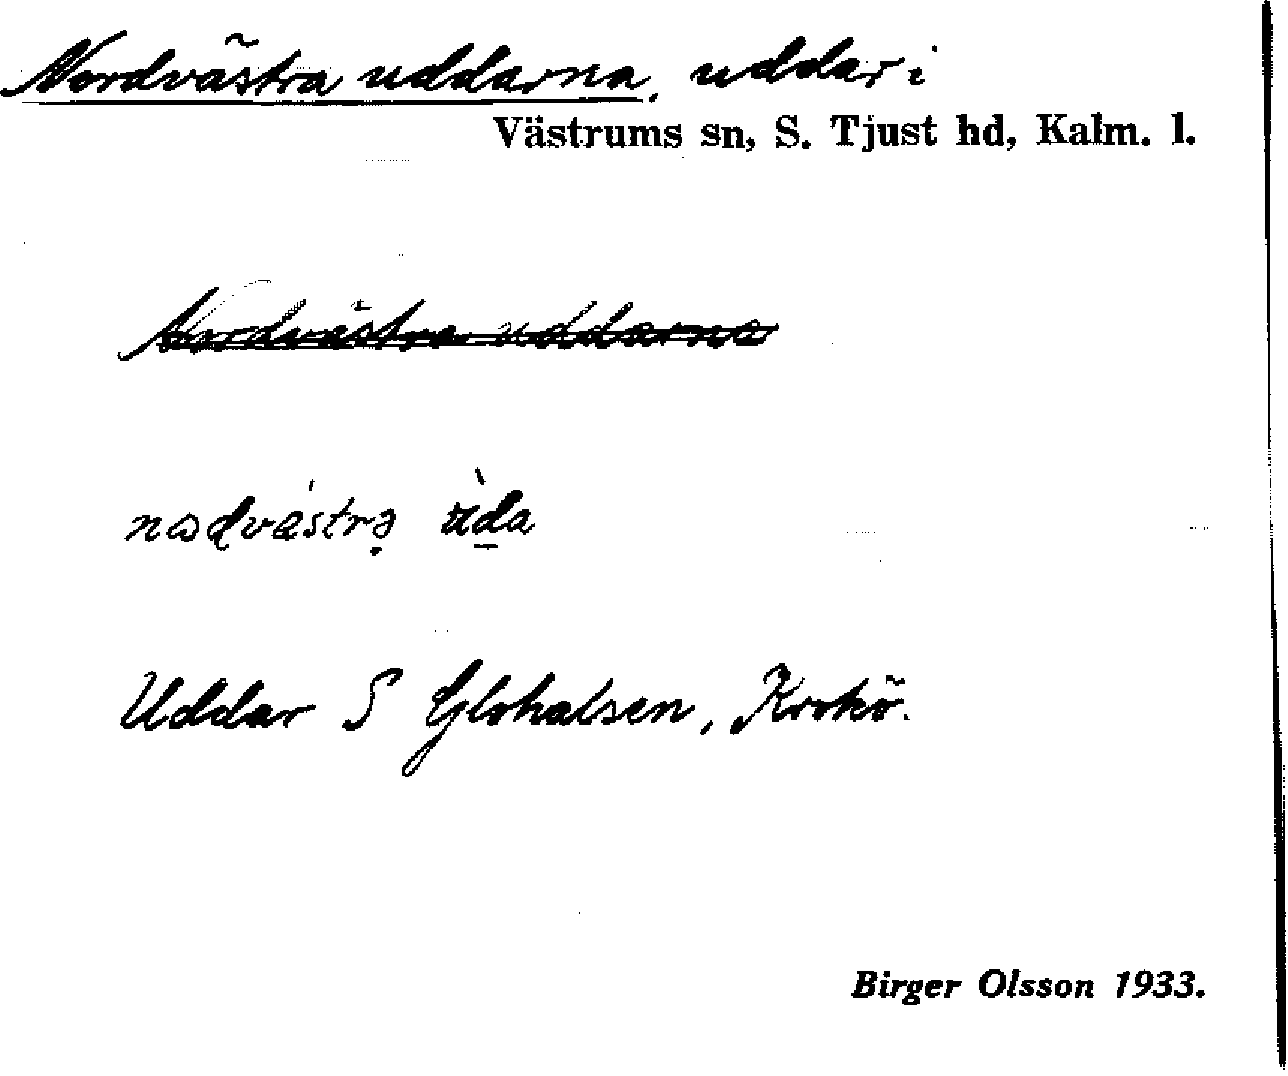 Nordvästra uddarna, uddar i
Västrums sn, S. Tjust hd, Kalm. l.
Nordvästra uddarna
Uddar S Glohalsen, Krokö.
Birger Olsson 1933.